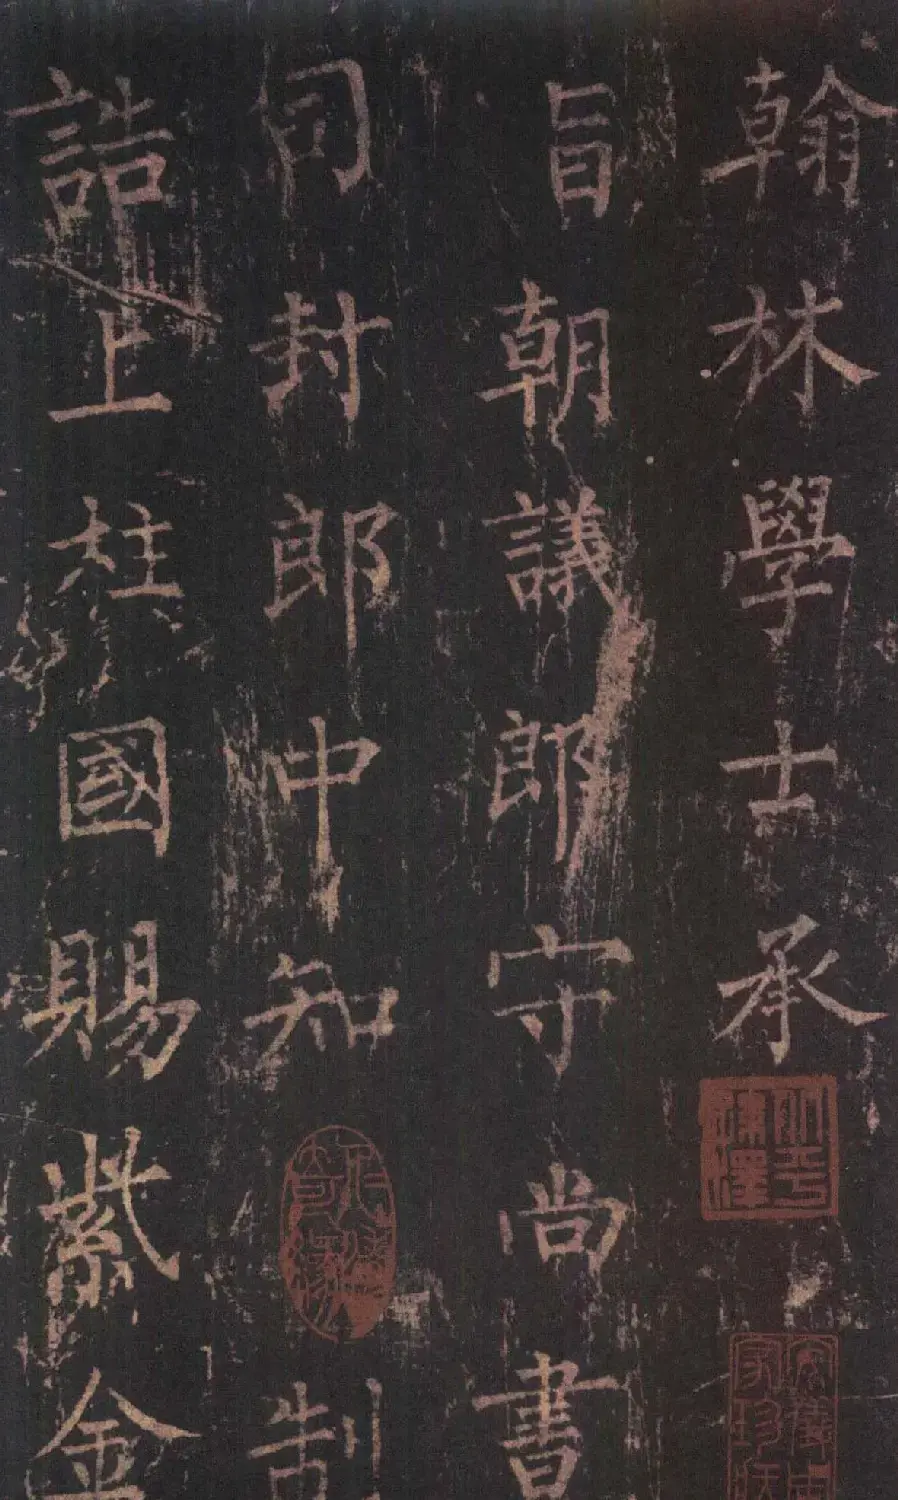 翰林學士承
旨朝議郎守尚書
司封郎中知制
誥上柱國賜紫金
安儀周
家珍藏